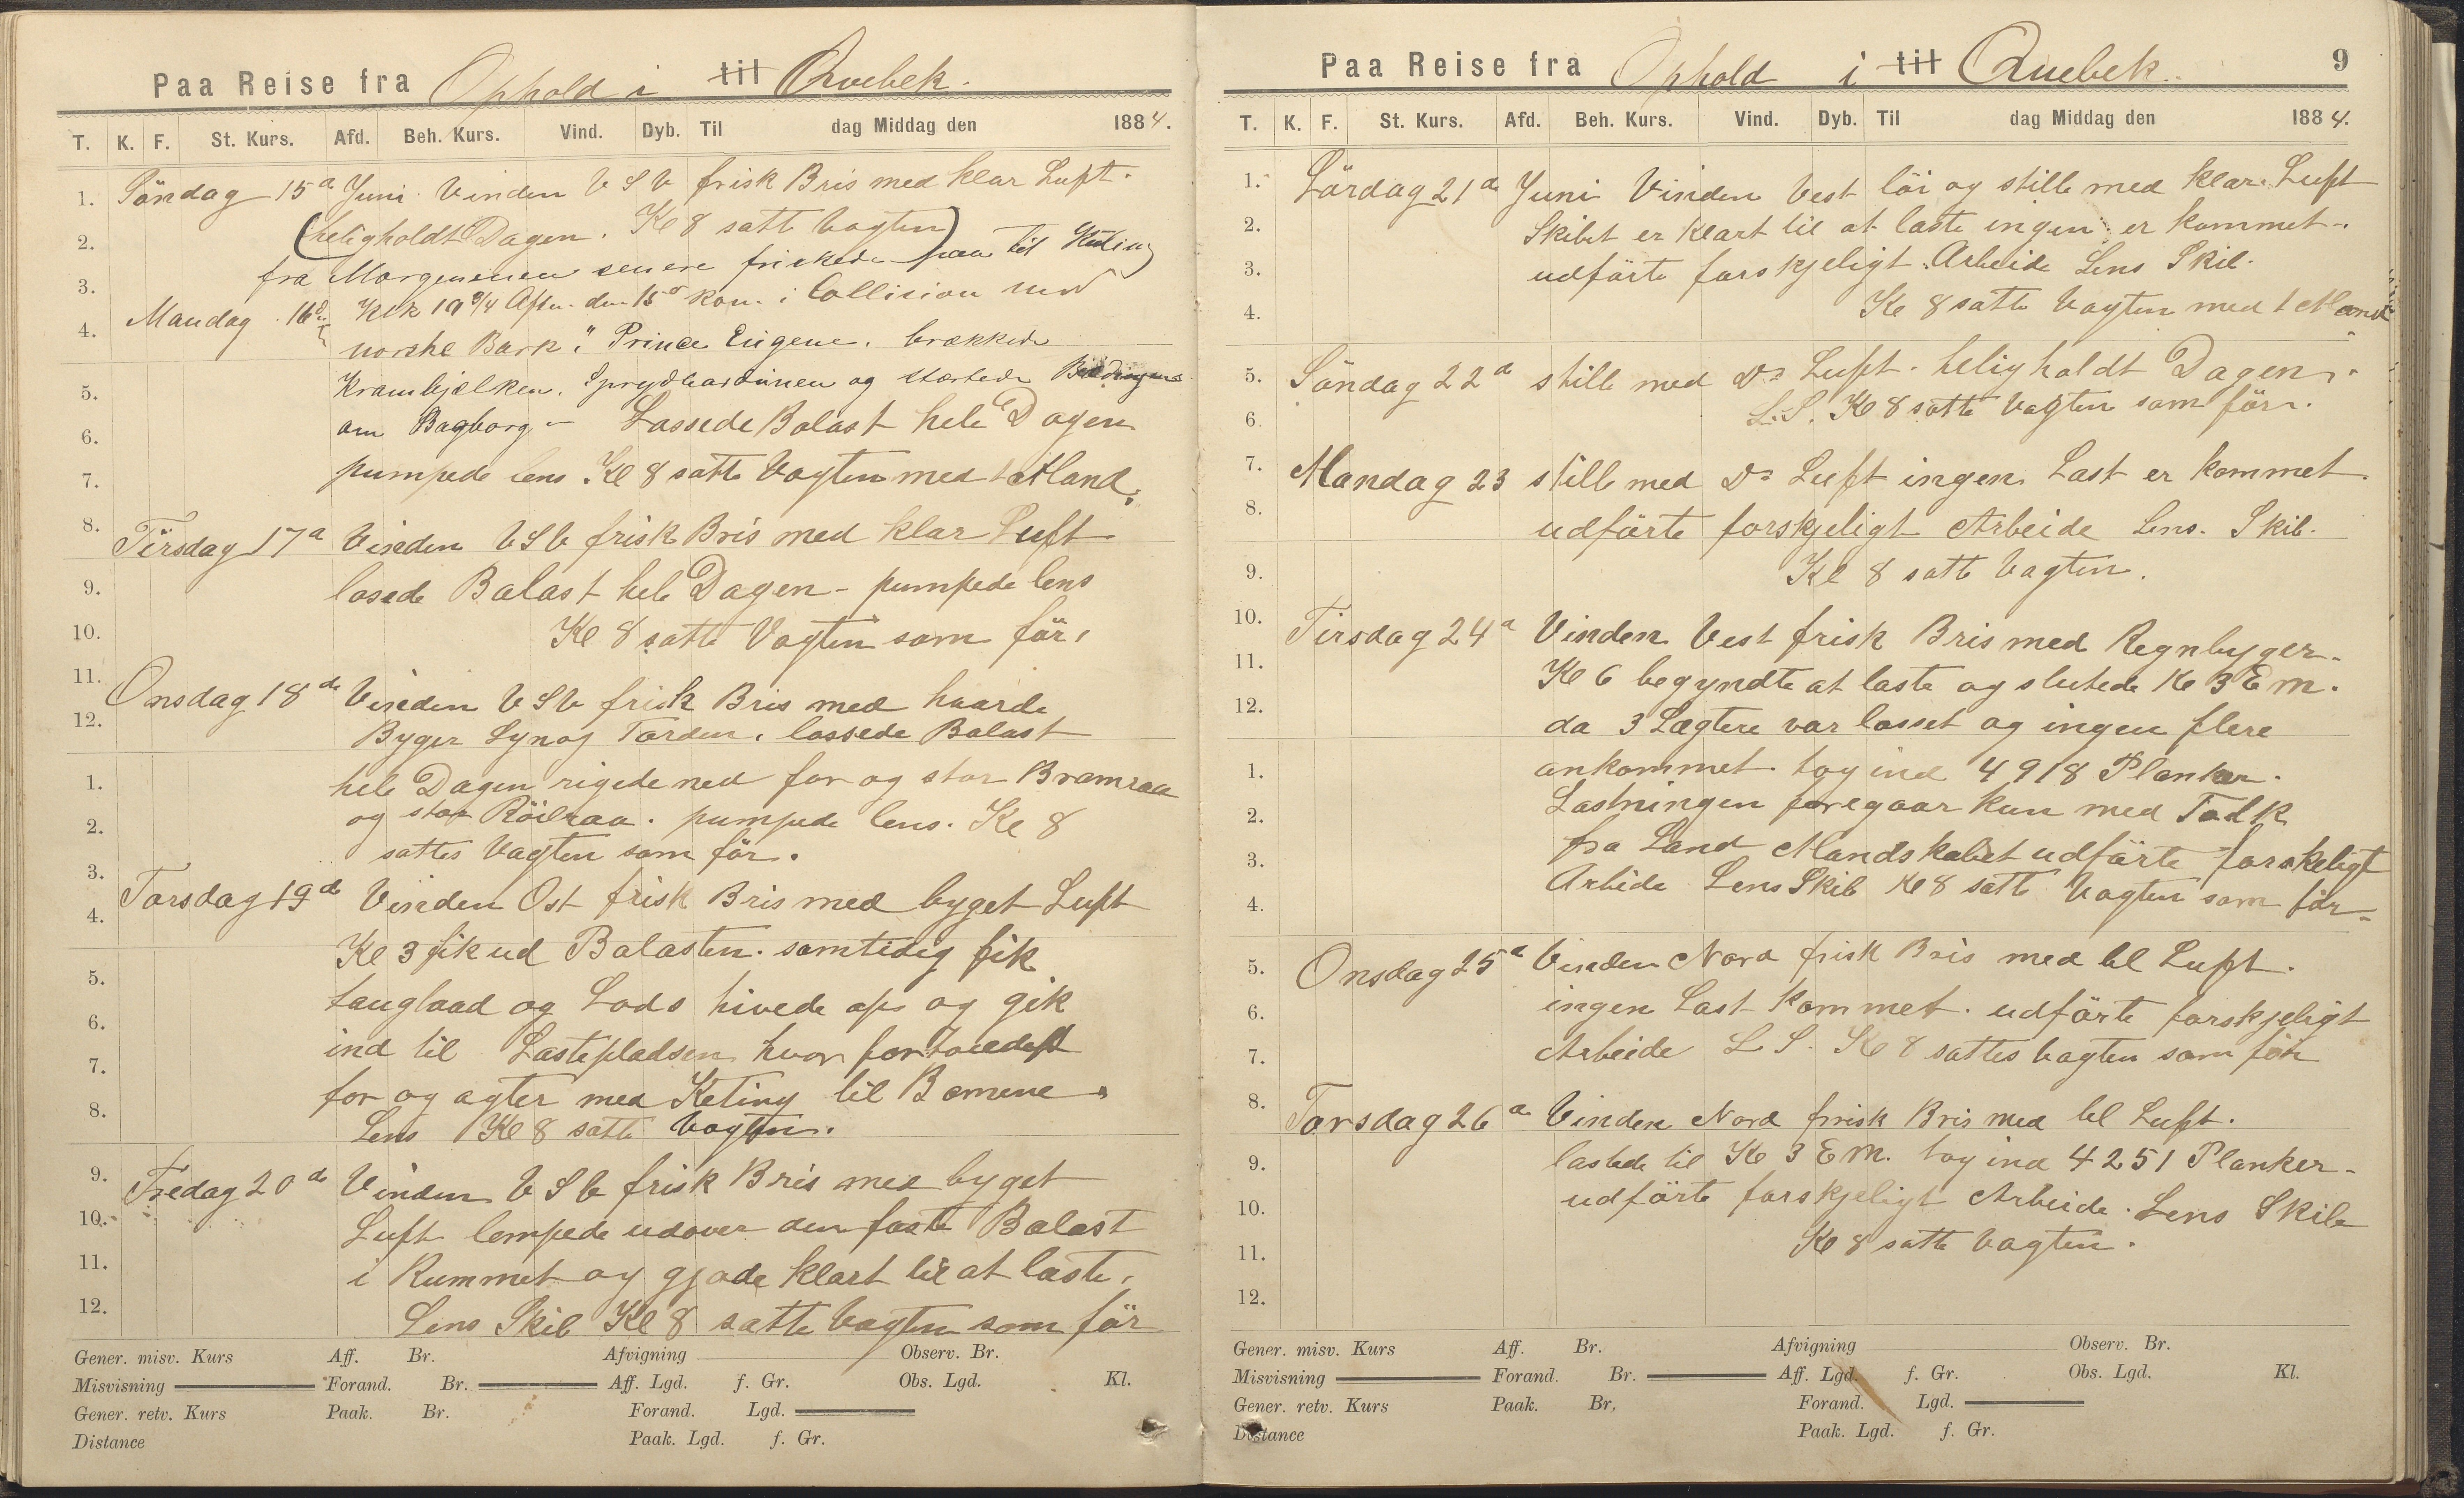 Paa Reise fra Ophold i til Qvebek.
T. K. F. St. Kurs. Afd. Beh. Kurs. Vind. Dyb. Til dag Middag den 1884.
1. Söndag 15d Juni. Vinden V S V frisk Bris med klar Luft.
2. (heligholdt Dagen. Kl 8 satte Vagten)
3. fra Morgenenen senere friskede paa til Kuling
4. Mandag 16d Klk 10 3/4 Aftn. den 15d kom i Collision med
norske Bark "Prince Eugene. brækkede
5. Krambjelken. Sprydbardunen og stærtede
6. om Bagborg - Lassede Balast hele Dagen
7. pumpede lens Kl 8 satte Vagten med 1 Mand.
8. Tirsdag 17d Vinden V S V frisk Bris med klar Luft
9. losede Balast hele Dagen - pumpede lens
10. Kl 8 satte Vagten som för,
11. Onsdag 18de Vinden V S V frisk Bris med haarde
12. Byger Lyn og Torden. lossede Balast
1. hele Dagen rigede ned for og stor Bramraa
2. og stor Röilraa. pumpede lens. Kl 8
3. sattes Vagten som för.
4. Torsdag 19de Vinden Ost frisk Bris med byget Luft
Kl 3 fik ud Balasten. samtidig fik
5. taugbaad og Lods hivede op og gik
6. ind til Lastepladsen hvor fortöiedes
7. for og agter med Keting til Bomene
8. Lens Kl 8 satte Vagten.
9. Fredag 20de Vinden V S V frisk Bris med byget
10. Luft lempede udover den faste Balast
11. i Rummet og gjode klart til at laste,
12. Lens Skib Kl 8 satte Vagten som för
Gener. misv. Kurs Aff. Br. Afvigning Observ. Br.
Misvisning Forand. Br. Aff. Lgd. f. Gr. Obs. Lgd. Kl.
Gener. retv. Kurs Paak. Br. Forand. Lgd.
Distance Paak. Lgd. f. Gr.
Paa Reise fra Ophold i til Quebek. 9
T. K. F. St. Kurs. Afd. Beh. Kurs. Vind. Dyb. Til dag Middag den 1884.
1. Lördag 21de Juni Vinden Vest löi og stille med klar Luft
2. Skibet er klart til at laste ingen er kommet.
3. udförte forskjeligt Arbeide Lens Skib.
4. Kl 8 satte Vagten med 1 Mand
5. Söndag 22d stille med Do Luft. heligholdt Dagen.
6. L. S. Kl 8 satte Vagten som för.
7. Mandag 23 stille med Do Luft ingen Last er kommet.
8. udförte forskjeligt Arbeide Lens. Skib.
9. Kl 8 satte Vagten.
10. Tirsdag 24d Vinden Vest frisk Bris med Regnbyger.
11. Kl 6 begyndte at laste og slutede Kl 3 Em.
12. da 3 Lægtere var losset og ingen flere
1. ankommet. tog ind 4918 Planker.
2. Lastningen foregaar kun med Folk
3. fra Land Mandskabet udförte forskeligt
4. Arbide Lens Skib Kl 8 satte Vagten som för
5. Onsdag 25d Vinden Nord frisk Bris med kl Luft.
6. ingen Last kommet. udförte forskjeligt
7. Arbeide L S. Kl 8 sattes Vagten som för
8. Torsdag 26d Vinden Nord frisk Bris med kl Luft.
9. lastede til Kl 3 EM. tog ind 4251 Planker.
10. udförte forskjeligt Arbeide. Lens Skib
11. Kl 8 satte Vagten.
12.
Gener. misv. Kurs Aff. Br. Afvigning Observ. Br.
Misvisning Forand. Br. Aff. Lgd. f. Gr. Obs. Lgd. Kl.
Gener. retv. Kurs Paak. Br. Forand. Lgd.
Distance Paak. Lgd. f. Gr.